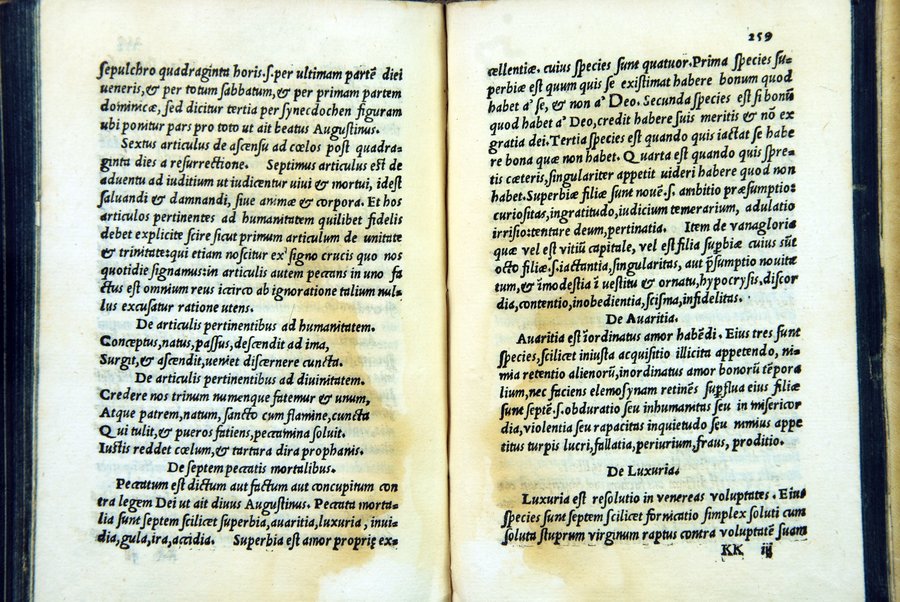 sepulchro quadraginta horis.s.per ultimam partē diei
ueneris,& per totum sabbatum,& per primam partem
dominicæ, sed dicitur tertia per synecdochen figuram
ubi ponitur pars pro toto ut ait beatus Augustinus.
Sextus articulus de ascensu ad cœlos post quadra-
ginta dies a resurrectione. Septimus articulus est de
aduentu ad iuditium ut iudicentur uiui & mortui, idest
saluandi & damnandi, siue animæ & corpora. Et hos
articulos pertinentes ad humanitatem quilibet fidelis
debet explicite scire sicut primum articulum de unitate
& trinitate:qui etiam noscitur ex signo crucis quo nos
quotidie signamus:in articulis autem peccans in uno fa
ctus est omnium reus icirco ab ignoratione talium nul-
lus excusatur ratione utens.
De articulis pertinentibus ad humanitatem.
Conceptus,natus,passus,descendit ad ima,
Surgit,& ascendit,ueniet discernere cuncta.
De articulis pertinentibus ad diuinitatem.
Credere nos trinum numenque fatemur & unum,
Atque patrem,natum,sancto cum flamine,cuncta
Qui tulit,& pueros fatiens,peccamina soluit.
Iustis reddet cœlum,& tartara dira prophanis.
De septem peccatis mortalibus.
Peccatum est dictum aut factum aut concupitum con
tra legem Dei ut ait diuus Augustinus. Peccata morta-
lia sunt septem scilicet superbia,auaritia,luxuria , inui-
dia,gula,ira,accidia. Superbia est amor proprię ex-
259
cællentiæ. cuius species sunt quatuor.Prima species su-
perbiæ est quum quis se existimat habere bonum quod
habet a' se, & non a' Deo. Secunda species est si bonū
quod habet a' Deo,credit habere suis meritis & nō ex
gratia dei.Tertia species est quando quis iactat se habe
re bona quæ non habet. Quarta est quando quis spre-
tis cæteris,singulariter appetit uideri habere quod non
habet.Superbiæ filiæ sunt nouē .s. ambitio præsumptio:
curiositas,ingratitudo,iudicium temerarium, adulatio
irrisio:tentare deum,pertinatia. Item de vanagloria
quæ vel est vitiū capitale, vel est filia supbiæ cuius sūt
octo filiæ.s.iactantia,singularitas, aut psumptio nouita
tum,& imodestia ī uestitu & ornatu,hypocrysis, discor
dia,contentio,inobedientia,scisma,infidelitas.
De Auaritia.
Auaritia est iordinatus amor habēdi. Eius tres sunt
species,scilicet iniusta acquisitio illicita appetendo, ni-
mia retentio alienorū,inordinatus amor bonorū tēpora
lium,nec faciens elemosynam retinēs supflua eius filiæ
sunt septē.s.obduratio seu inhumanitas seu in misericor
dia,violentia seu rapacitas inquietudo seu nimius appe
titus turpis lucri,fallatia,periurium,fraus, proditio.
De Luxuria.
Luxuria est resolutio in venereas voluptates . Eius
species sunt septem scilicet fornicatio simplex soluti cum
soluta stuprum virginum raptus contra voluptatē suam
KK iij